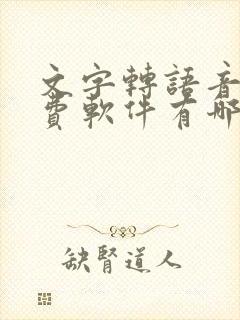 文字轉語音
費軟件有哪
缺腎道人